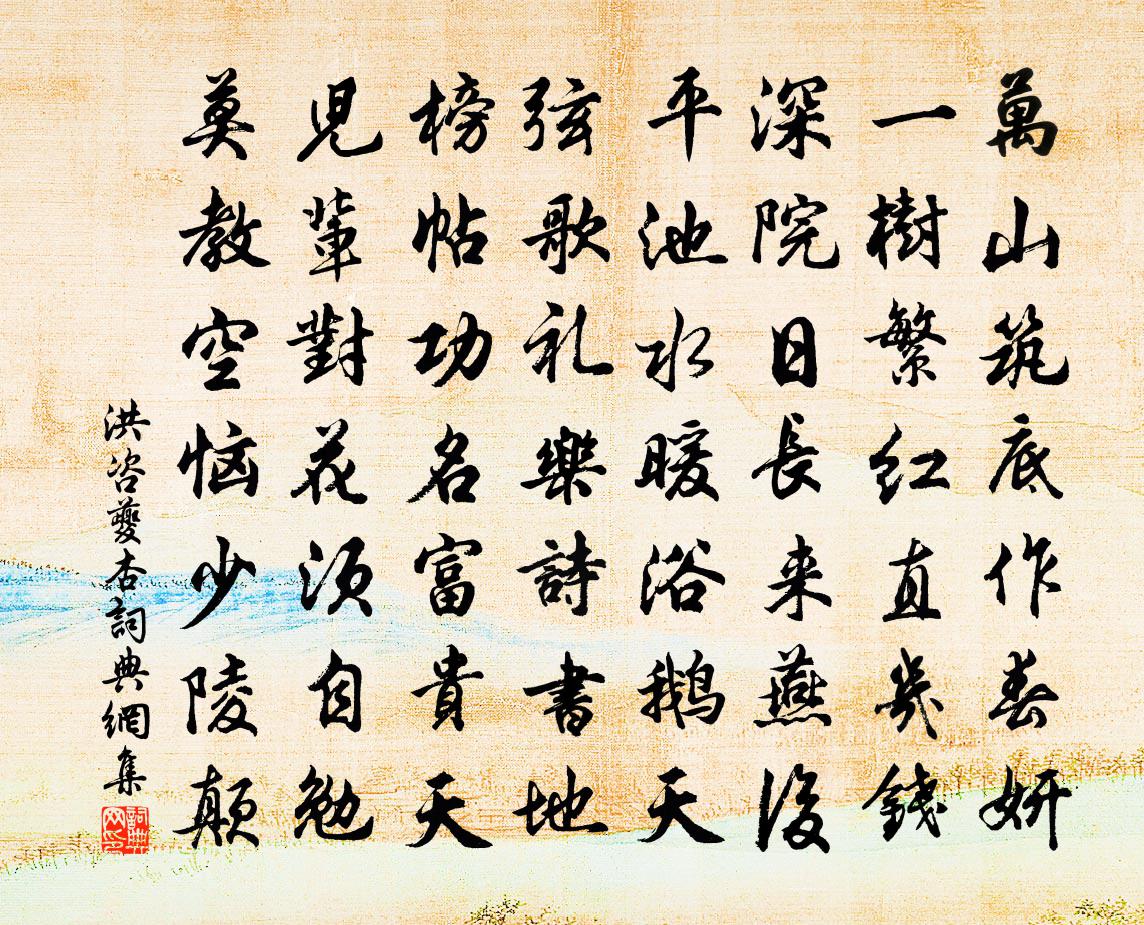 萬山筑底作春妍
一樹繁红直幾錢
深院日長来燕後
平池水暖浴鹅天
弦歌礼樂詩書地
榜帖功名富貴天
児輩對花须自勉
莫教空恼少陵颠
洪咨夔杏詞典網集
詞典网印